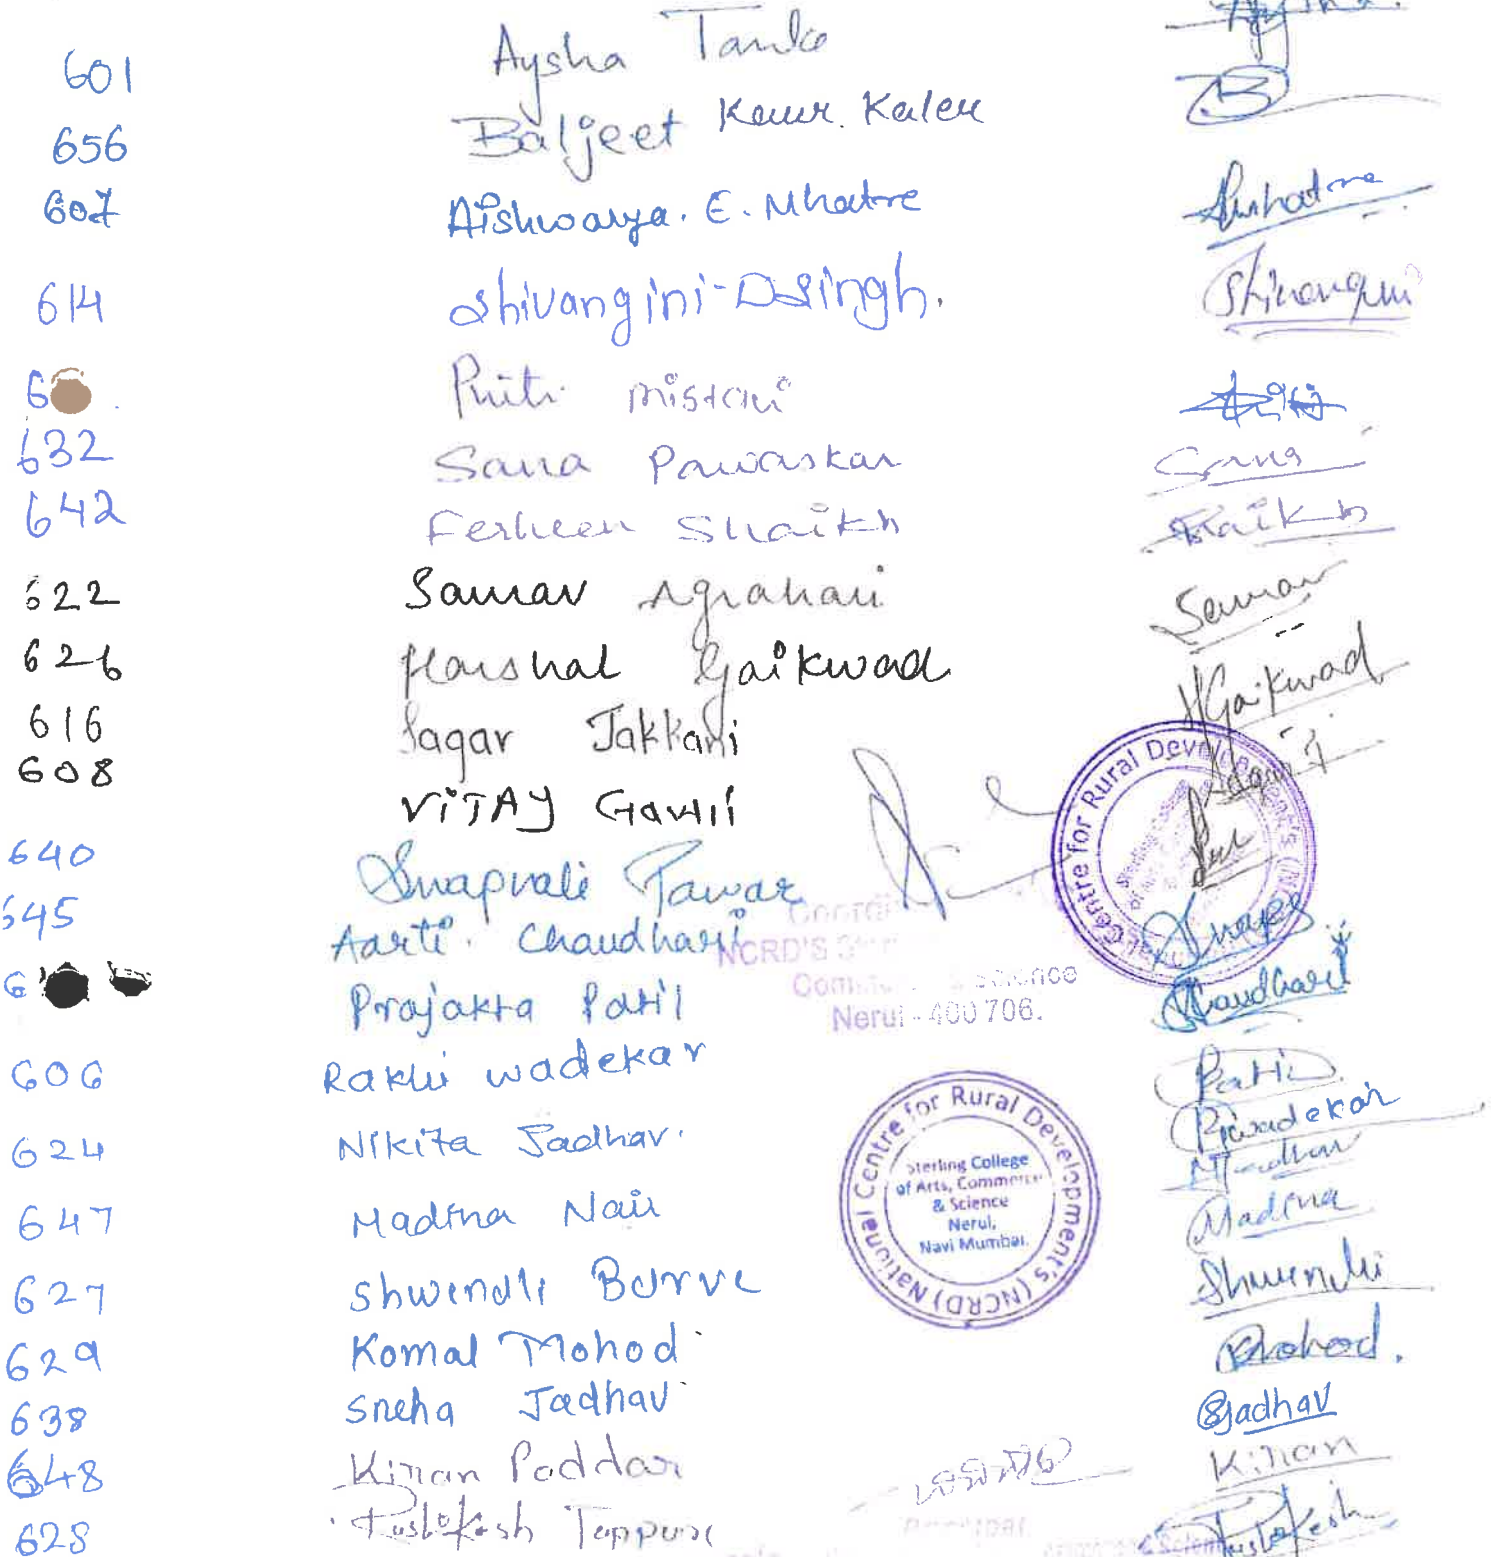 601 Aysha Tanko
656 Baljeet Kaur. Kaler B
607 Aishwarya. E. Mhatre Mhatre
614 Shivangini-D Singh. Shivangini
6 Priti Mistari
632 Sana Pawaskar Sana
642 Ferheen Shaikh Shaikh
622 Saurav Agrahari Saurav
626 Harshal Gaikwad HGaikwad
616 Sagar Jakkani
608 VIJAY Gavli
640 Swapnali Pawar
645 Aarti. Chaudhari Chaudhari
6 Prajakta Patil Patil
606 Rakhi wadekar Rwadekar
624 Nikita Jadhav. NJadhav
647 Madina Nair Madina
627 Shwendli Burve Shwendli
629 Komal Mohod Mohod.
638 Sneha Jadhav SJadhav
648 Kiran Poddar Kiran
628
Centre for Rural Development's
NCRD'S
Science
Nerul - 400 706.
National Centre for Rural Development's (NCRD)
Sterling College
of Arts, Commerce
& Science
Nerul,
Navi Mumbai.